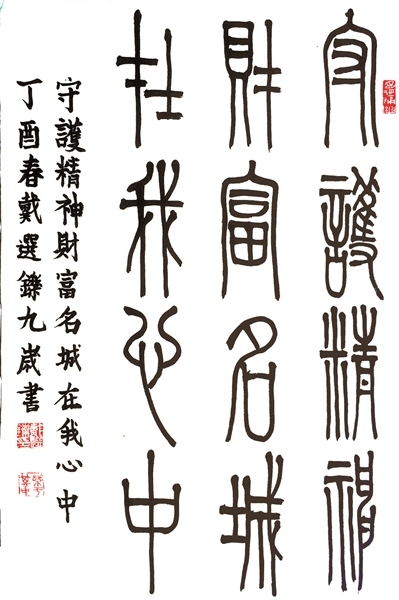 守護精神
財富名城
在我心中
守護精神財富名城在我心中
丁酉春戴選鑠九歲書